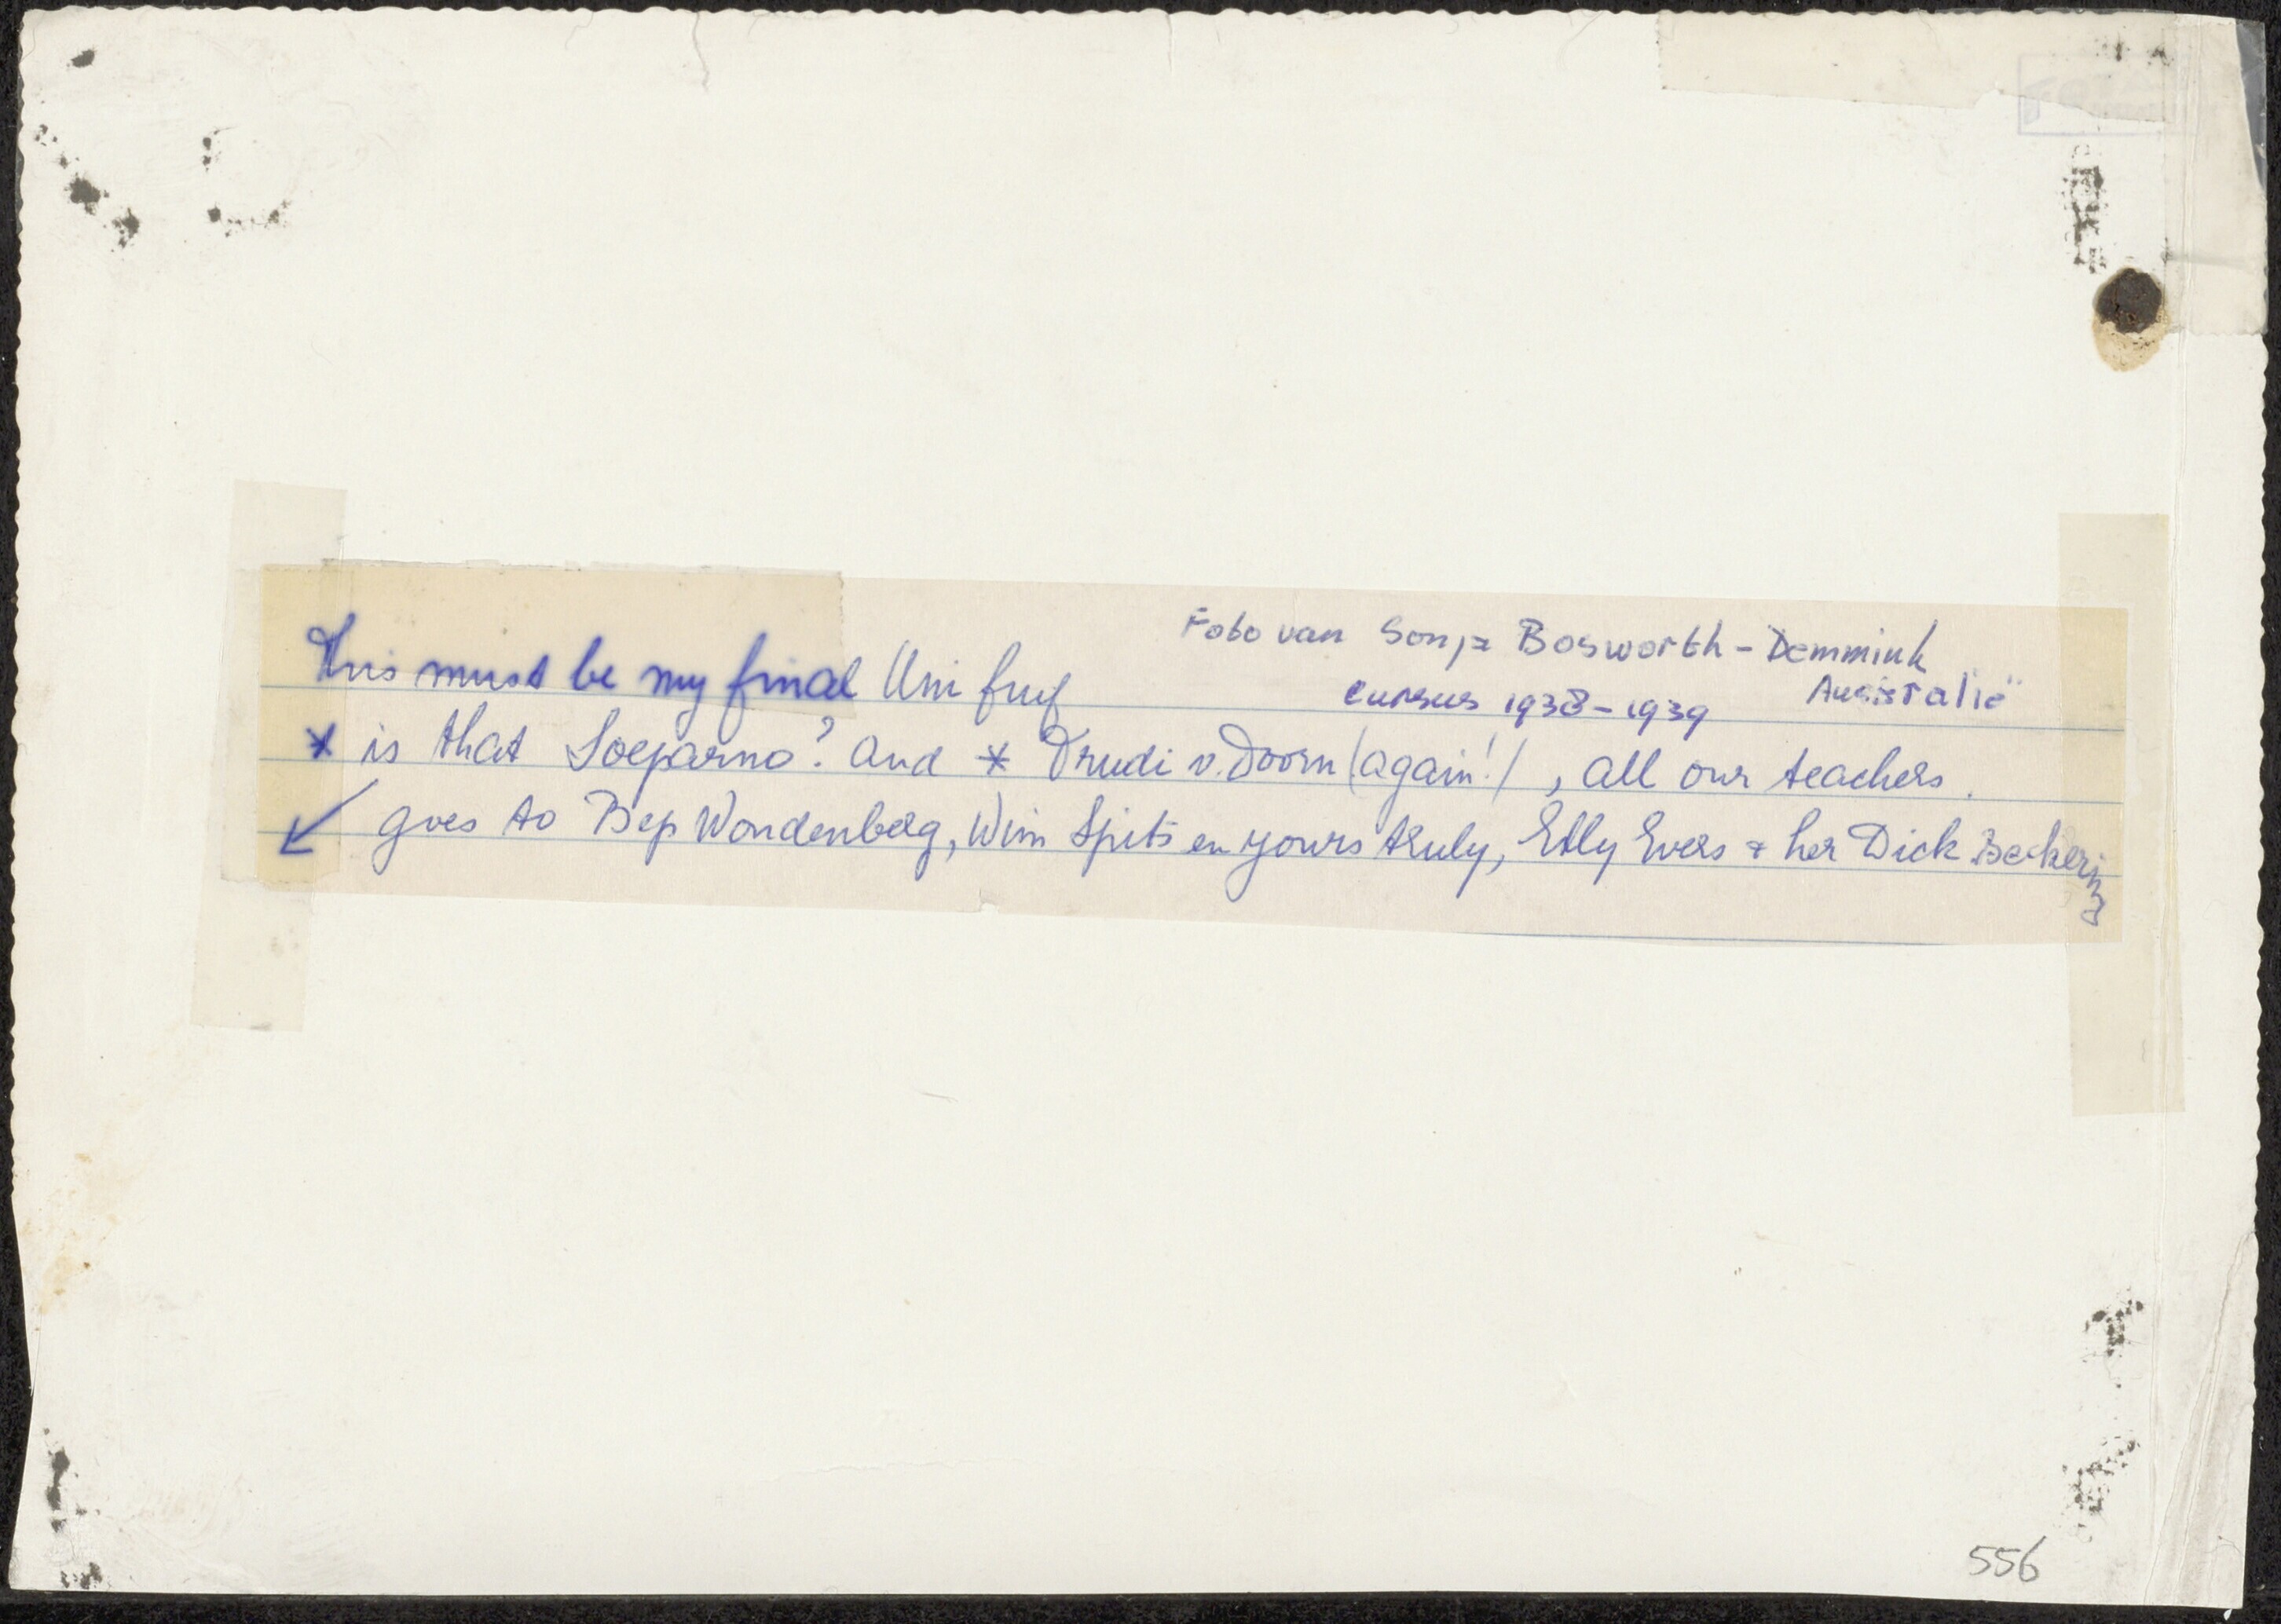 Foto van Sonja Bosworth-Demmink
Australië
cursus 1938-1939
This must be my final Uni fuif
* is that Soeparno? and * Trudi v. Doorn (again!), all our teachers.
↙ goes to Bep Wondenberg, Wim Spits en yours truly, Elly Evers + her Dick Beckering
556